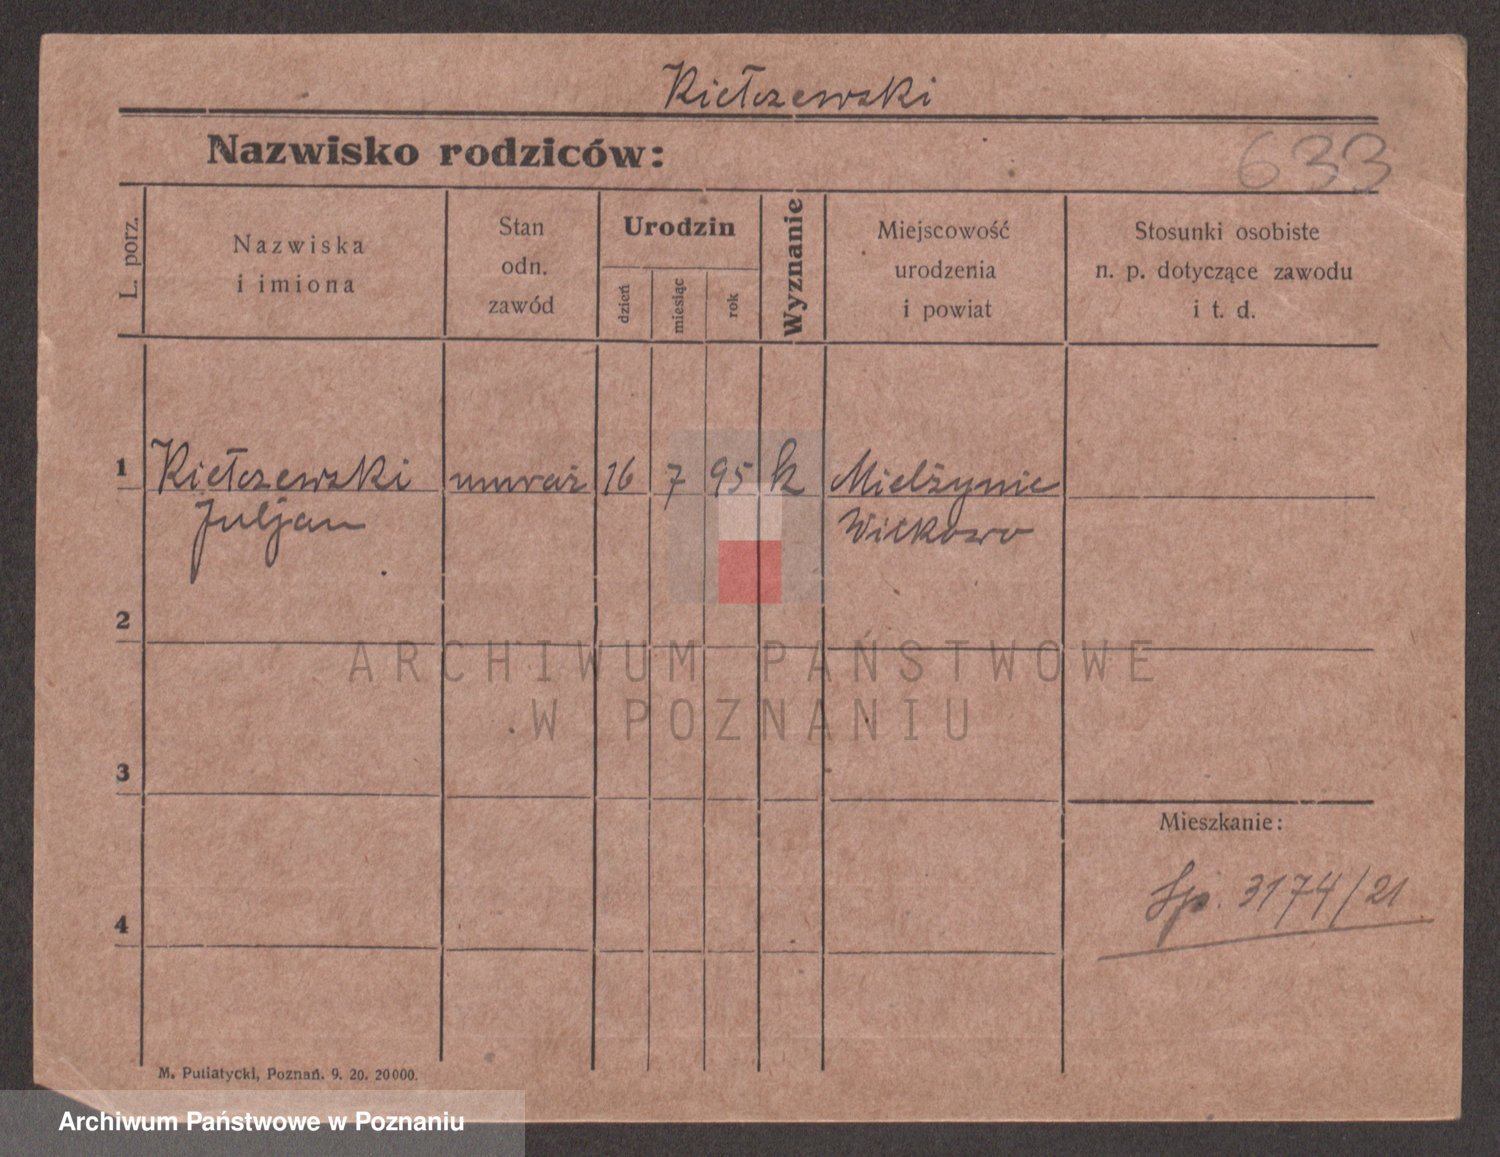 Kiełczewski
Nazwisko rodziców:
633
L. porz.
Nazwiska
i imiona
Stan
odn.
zawód
Urodzin
dzień
miesiąc
rok
Wyznanie
Miejscowość
urodzenia
i powiat
Stosunki osobiste
n. p. dotyczące zawodu
i t. d.
1 Kiełczewski 16 7 95 k Mielżynie
Juljan Witkowo
2
ARCHIWUM PAŃSTWOWE
W POZNANIU
3
Mieszkanie:
3174/21
4
M. Putiatycki, Poznań. 9. 20. 20000.
Archiwum Państwowe w Poznaniu